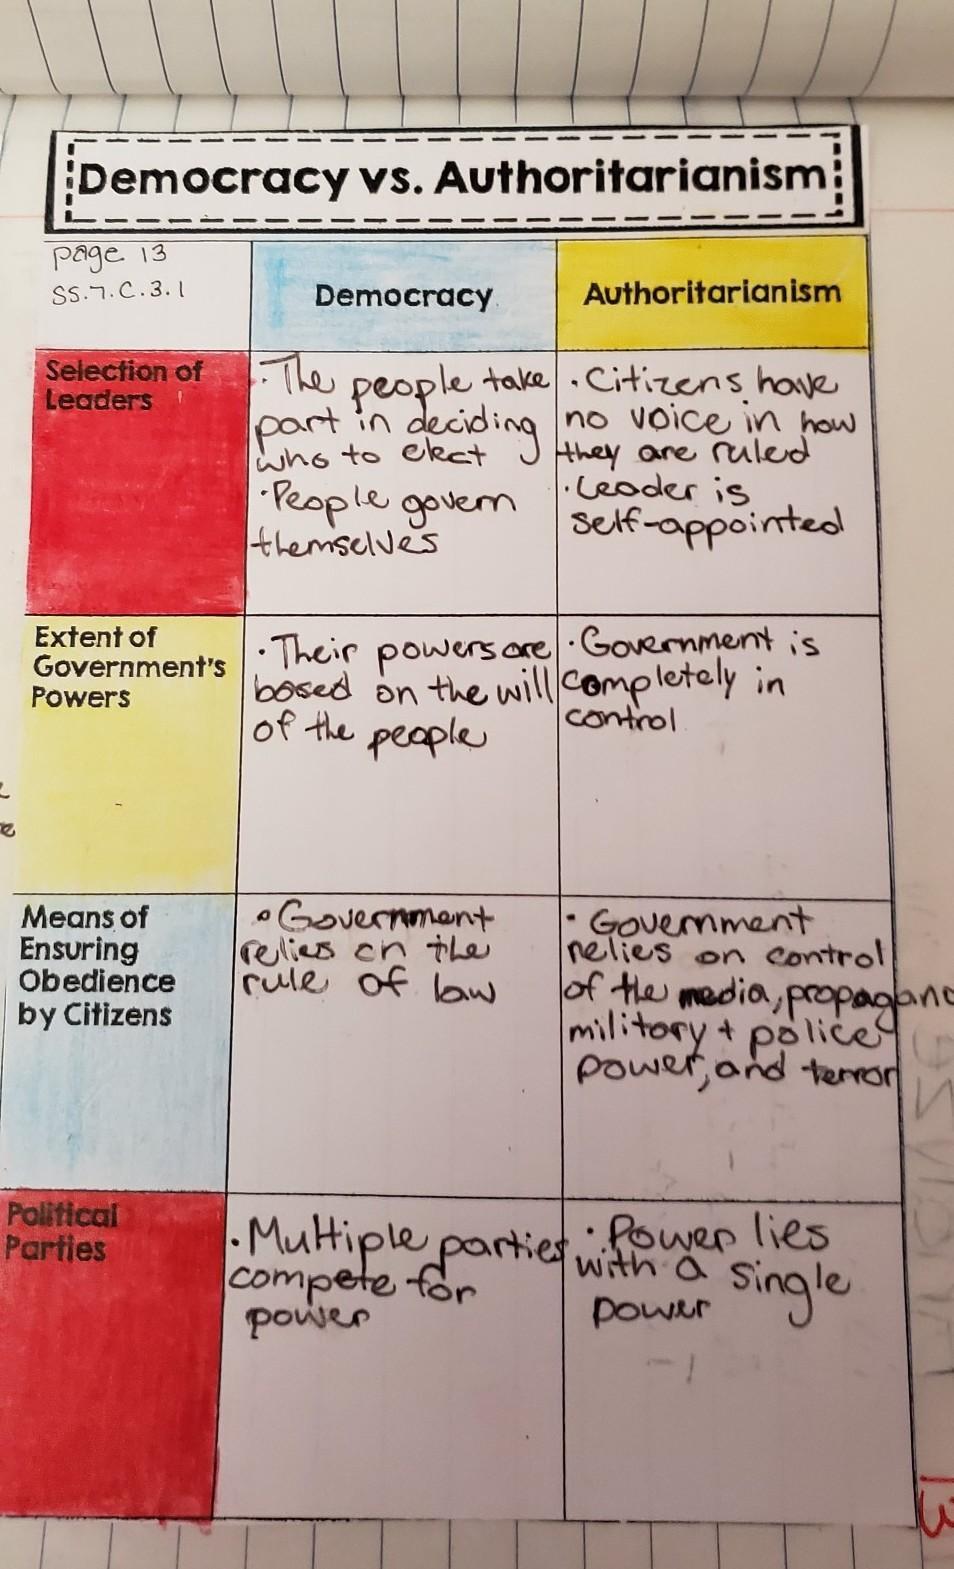 Democracy vs. Authoritarianism
page 13
SS.7.C.3.1
Democracy
Authoritarianism
Selection of
Leaders
• The people take
part in deciding
who to elect
• People govern
themselves
• Citizens have
no voice in how
they are ruled
• Leader is
self-appointed
Extent of
Government's
Powers
• Their powers are
based on the will
of the people
• Government is
completely in
control
Means of
Ensuring
Obedience
by Citizens
• Government
relies on the
rule of law
• Government
relies on control
of the media, propagand
military + police
power, and terror
Political
Parties
• Multiple parties
compete for
power
• Power lies
with a single
power